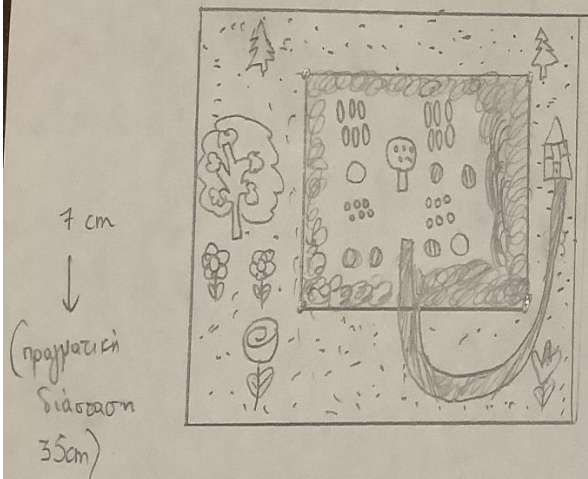 7 cm
(πραγματική
διάσταση
35cm)